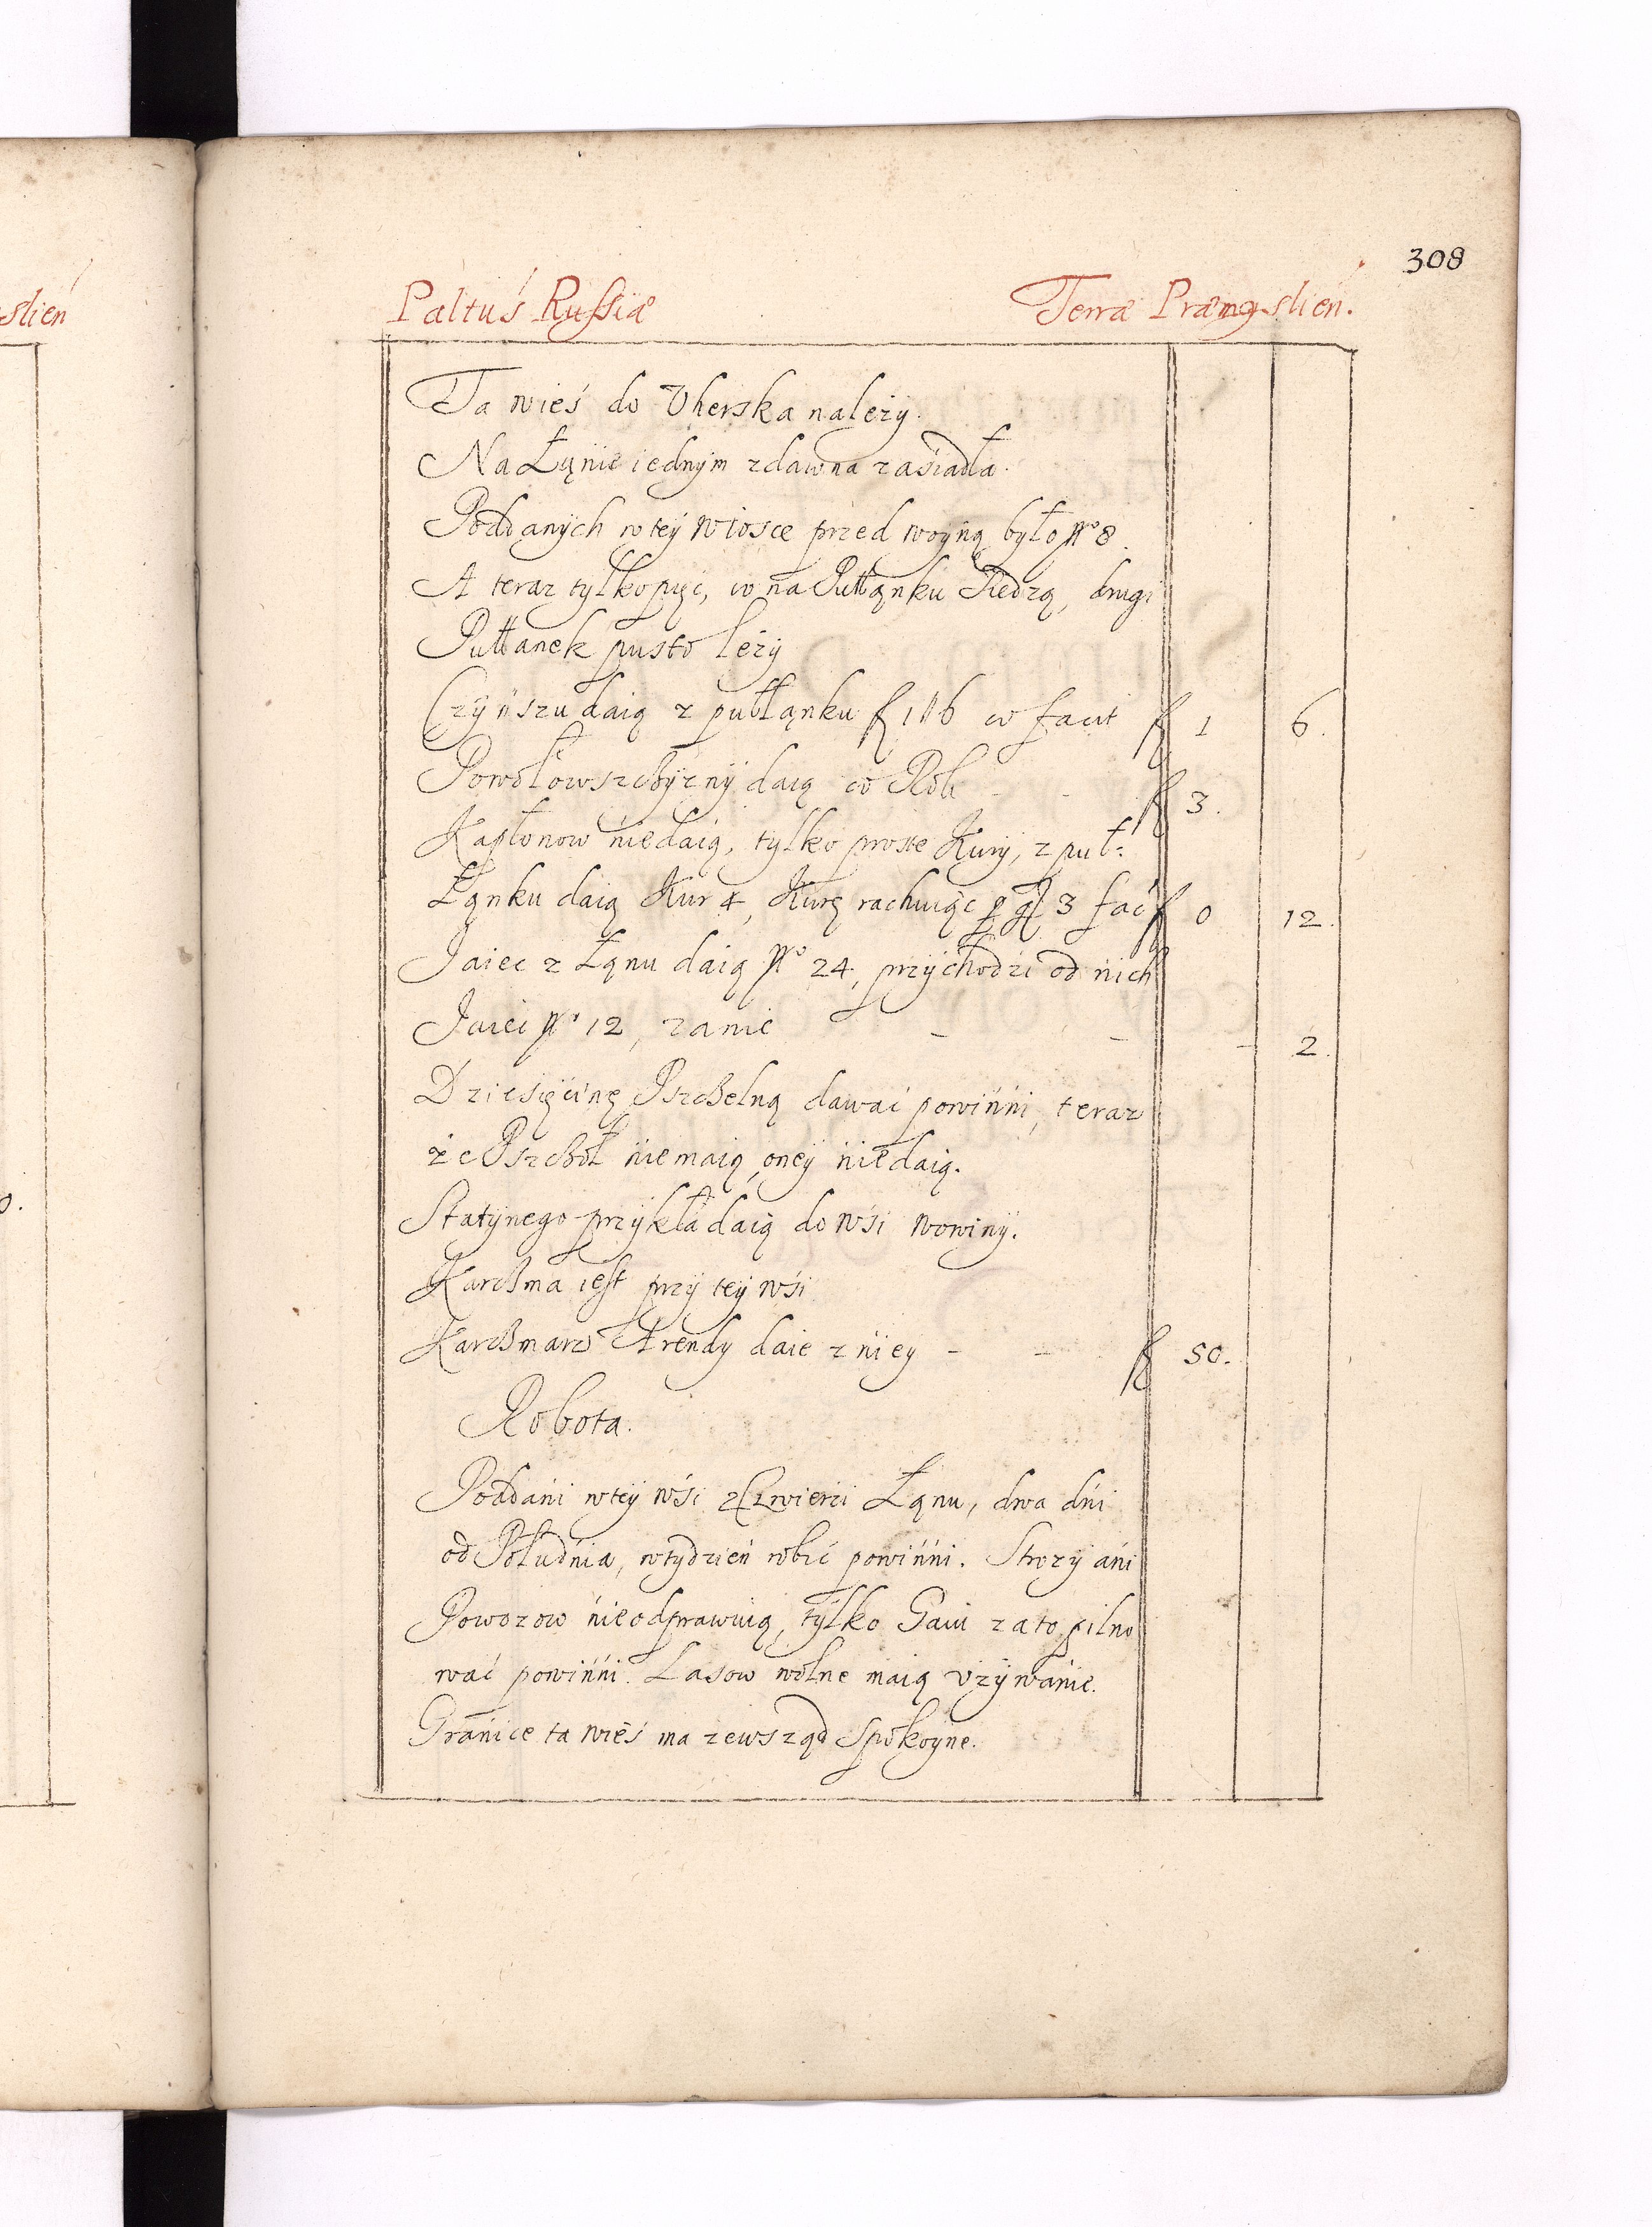 308
slien
Paltus Russiæ Terræ Præmysslien.
Ta wieś do Vherska należy.
Na Łąnie iednym zdawna zasiadła.
Poddanych w tey wiosce przed woyną było No 8.
A teraz tylko pięć, co na Pułłąnku siedzą, drugi
Pułłanek pusto leży
Czynszu daią z pułłąnku f 1 / 6 co facit f 1 6.
Powołowszczyzny daią co Rok - - f 3.
Kapłonow niedaią, tylko proste Kury, z puł:
Łąnku daią Kur 4, Kurę rachuiąc p gl 3 fac f 0 12.
Jaiec z Łąnu daią No 24, przychodzi od nich
Jaiec No 12, zanie - - - 2.
Dziesięcinę Pszczelną dawać powinni, teraz
że Pszczoł niemaią oney niedaią.
Statynego przykładaią do wśi Nowiny.
Karczma iest przy tey wśi
Karczmarz Arendy daie z niey - - f 50.
Robota.
Poddani w tey wśi z Czwierci Łąnu, dwa dni
od Południa, w tydzień robić powinni. Stroży ani
Powozow nieodprawuią, tylko Gaiu zato pilno
wać powinni. Lasow wolne maią vżywanie.
Granice ta wieś ma zewsząd Spokoyne.
0.